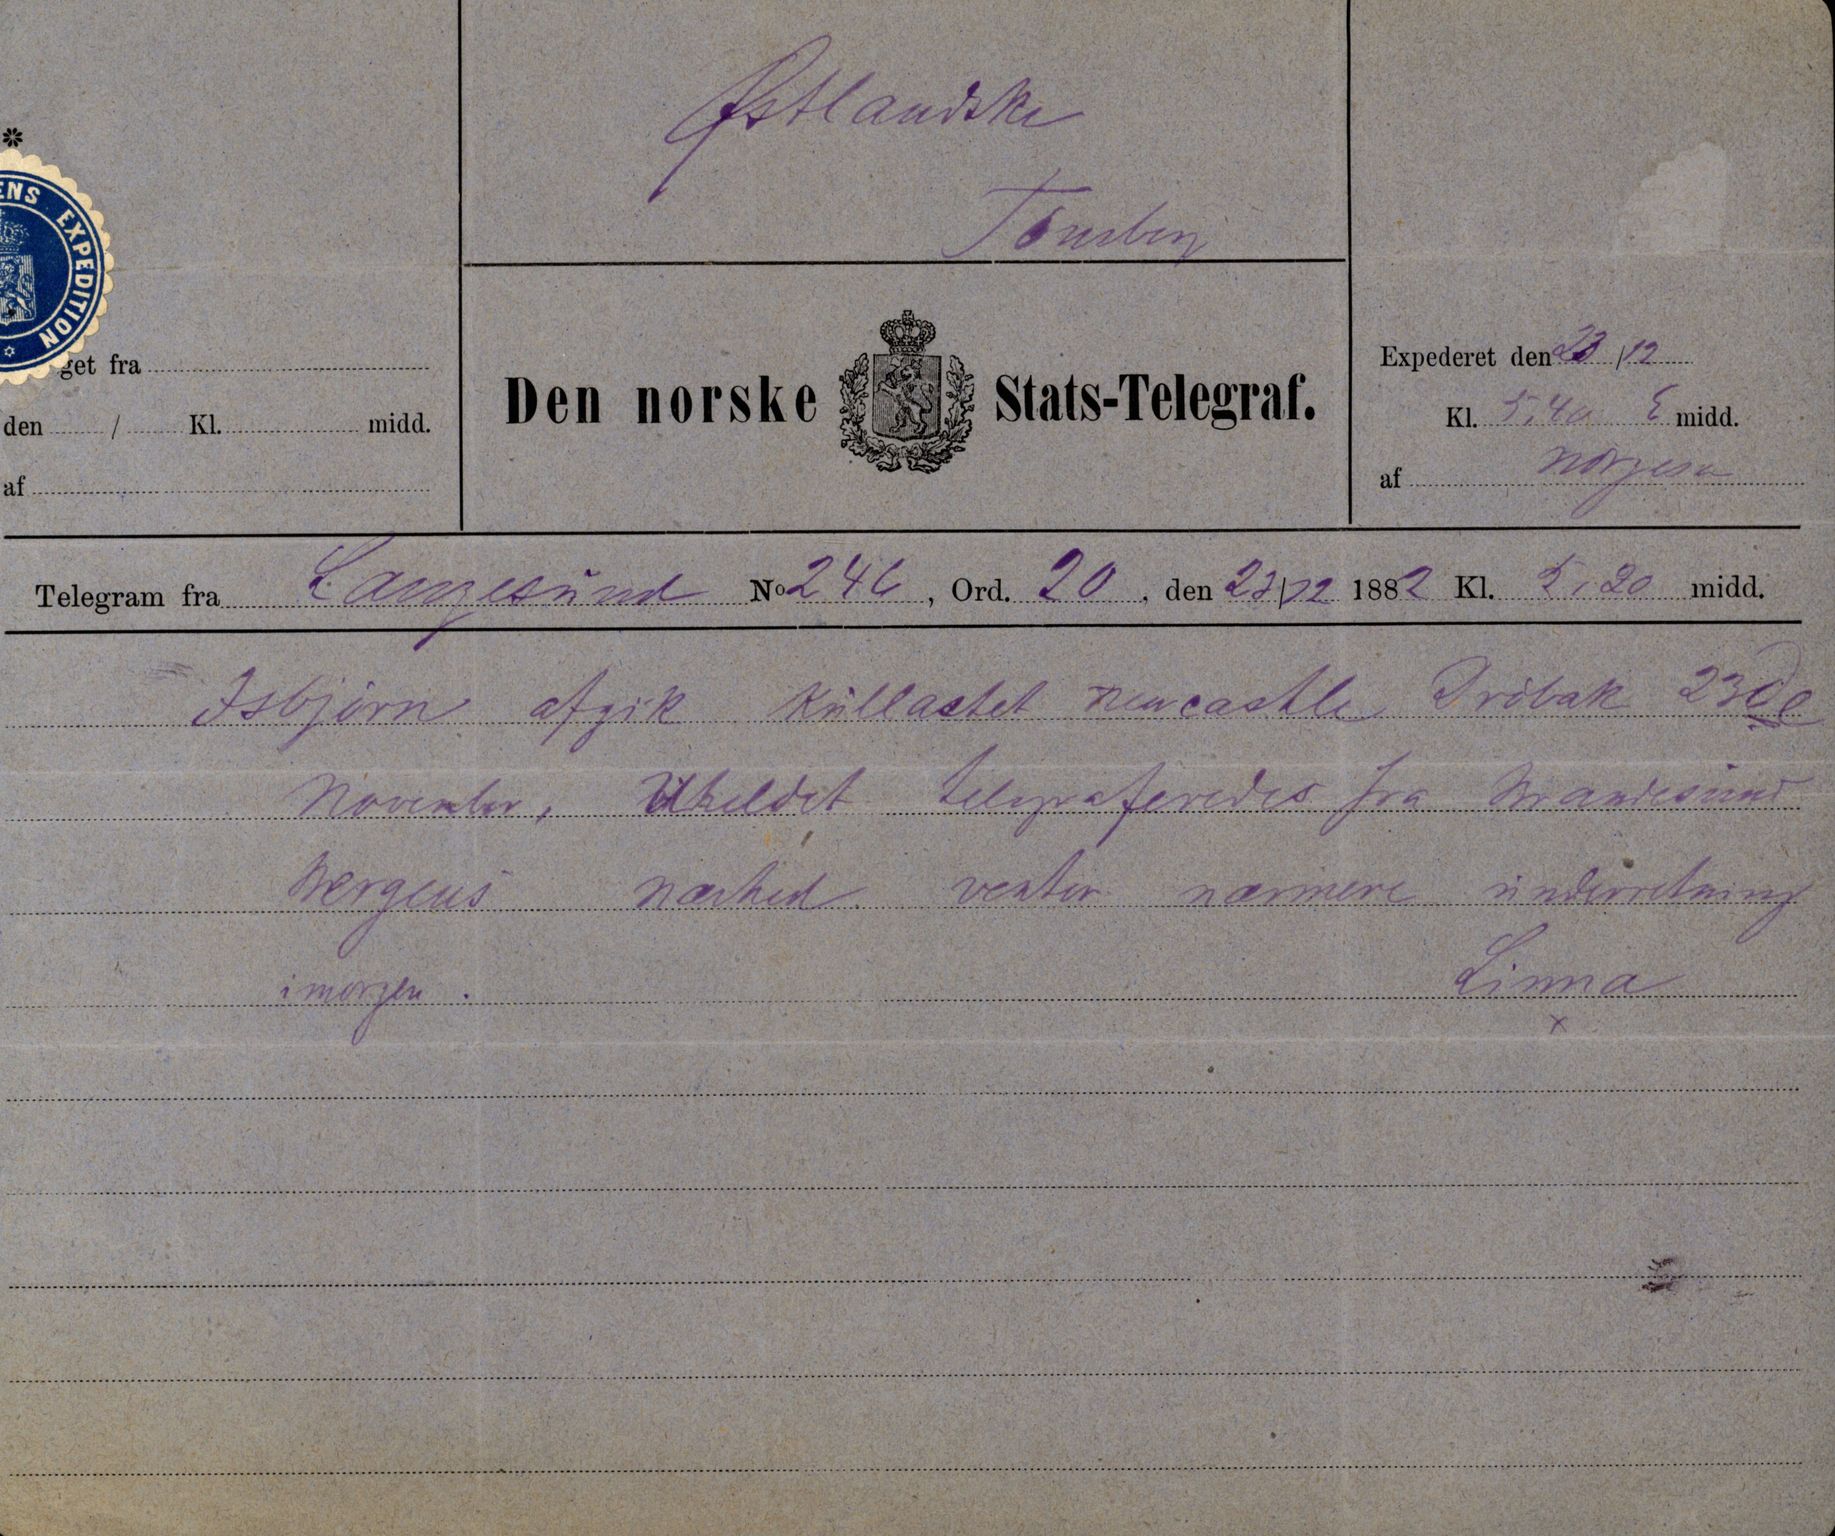 Østlandske
Tønsberg
*
ENS EXPEDITION
get fra
den / Kl. midd.
af
Den norske Stats-Telegraf.
Expederet den 23/12
Kl. 5,40 E midd.
af
Telegram fra Langesund No 246, Ord. 20, den 23/12 1882 Kl. 5,20 midd.
Isbjörn afgik kullastet Newcastle Dröbak 23de
November, Uheldet telegraferedes fra Brandesund
Bergens nærhed venter nærmere underretning
imorgen. Linna
x